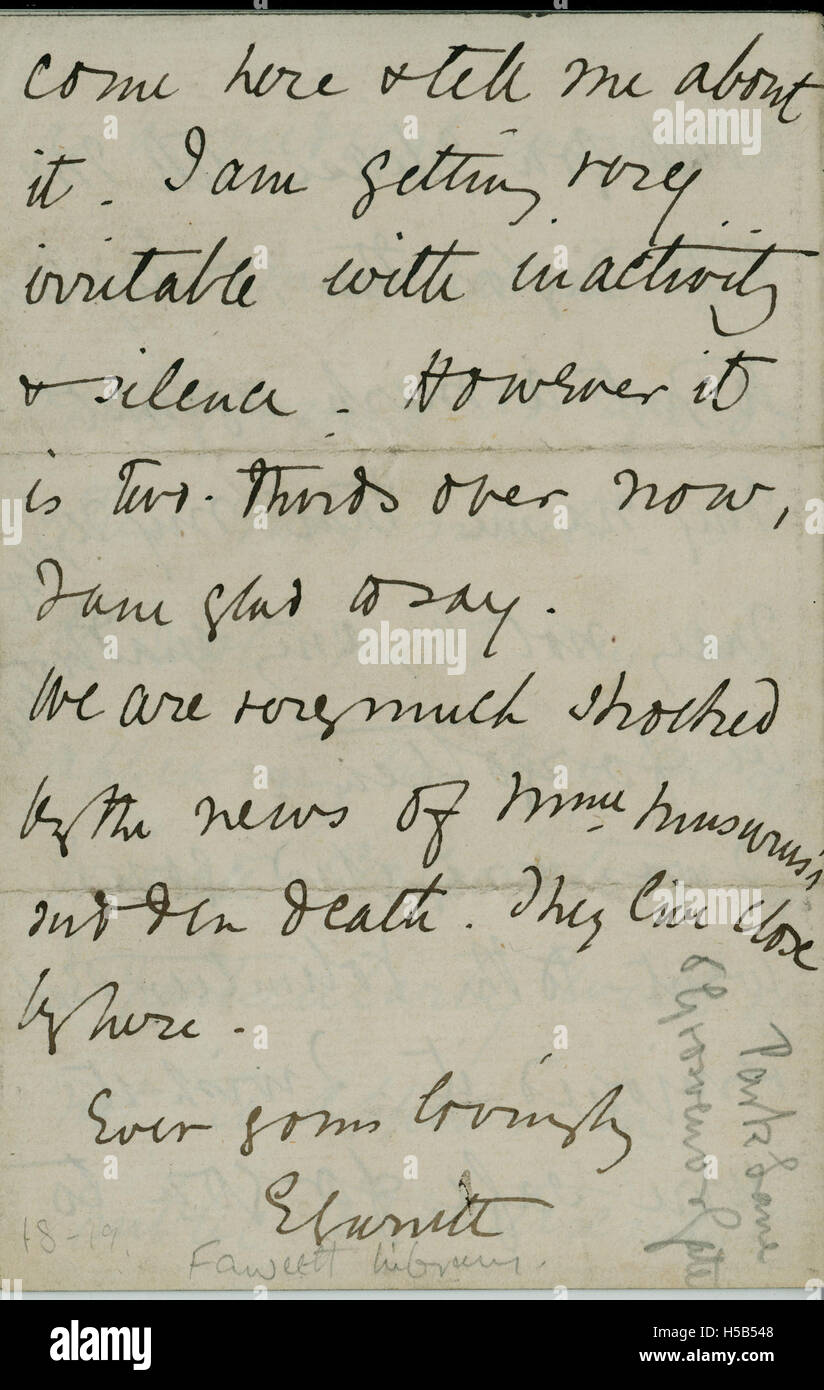 come here & tell me about
it. I am getting very
irritable with inactivity
& silence. However it
is two-thirds over now,
I am glad to say.
We are very much shocked
by the news of Mme Musurus's
sudden death. They live close
by here.
Ever yours lovingly
E Garrett
18-19.
Fawcett Library.
alamy
alamy stock photo
H5B548
www.alamy.com